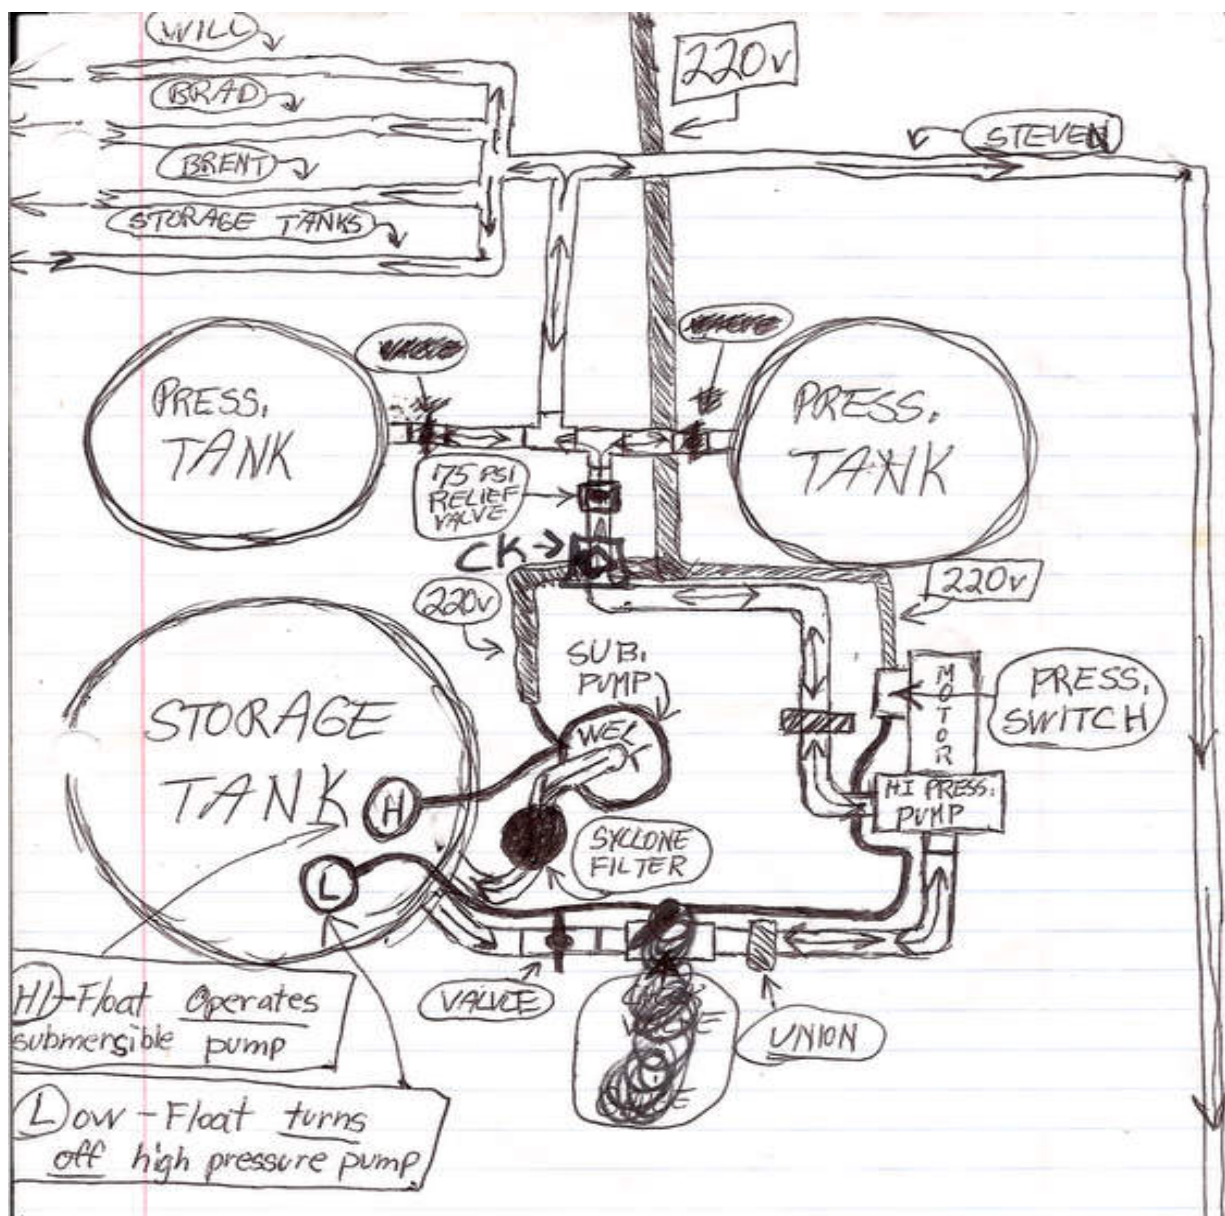 WILL
220v
BRAD
STEVEN
BRENT
STORAGE TANKS
PRESS.
TANK
PRESS.
TANK
175 PSI
RELIEF
VALVE
CK
220v
220v
SUB.
PUMP
WELL
STORAGE
TANK
MOTOR
PRESS.
SWITCH
HI PRESS.
PUMP
H
L
SYCLONE
FILTER
VALVE
UNION
HI-Float Operates
submersible pump
Low-Float turns
off high pressure pump